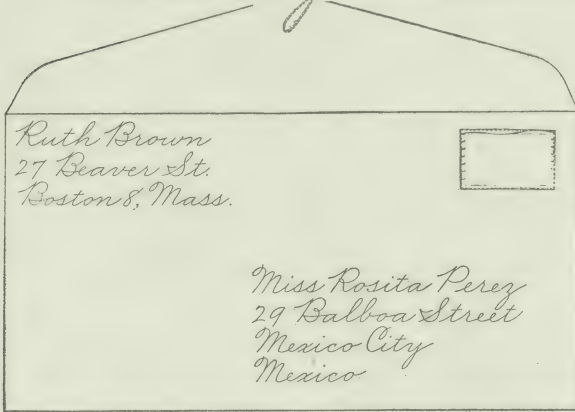 Ruth Brown
27 Beaver St.
Boston 8, Mass.
Miss Rosita Perez
29 Balboa Street
Mexico City
Mexico